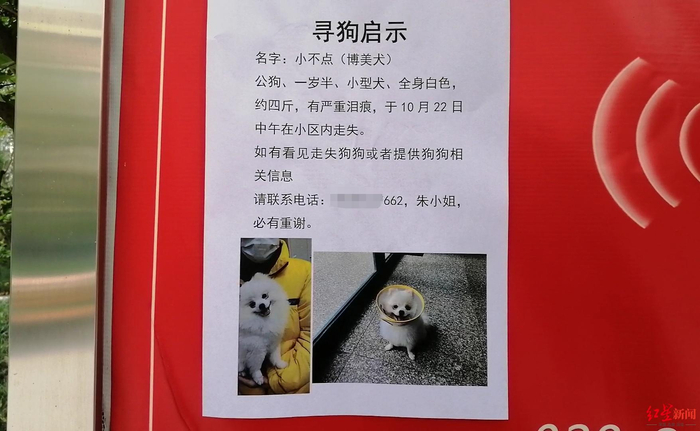 寻狗启示
名字：小不点（博美犬）
公狗、一岁半、小型犬、全身白色，
约四斤，有严重泪痕，于10月22日
中午在小区内走失。
如有看见走失狗狗或者提供狗狗相
关信息
请联系电话：662，朱小姐，
必有重谢。
红星新闻